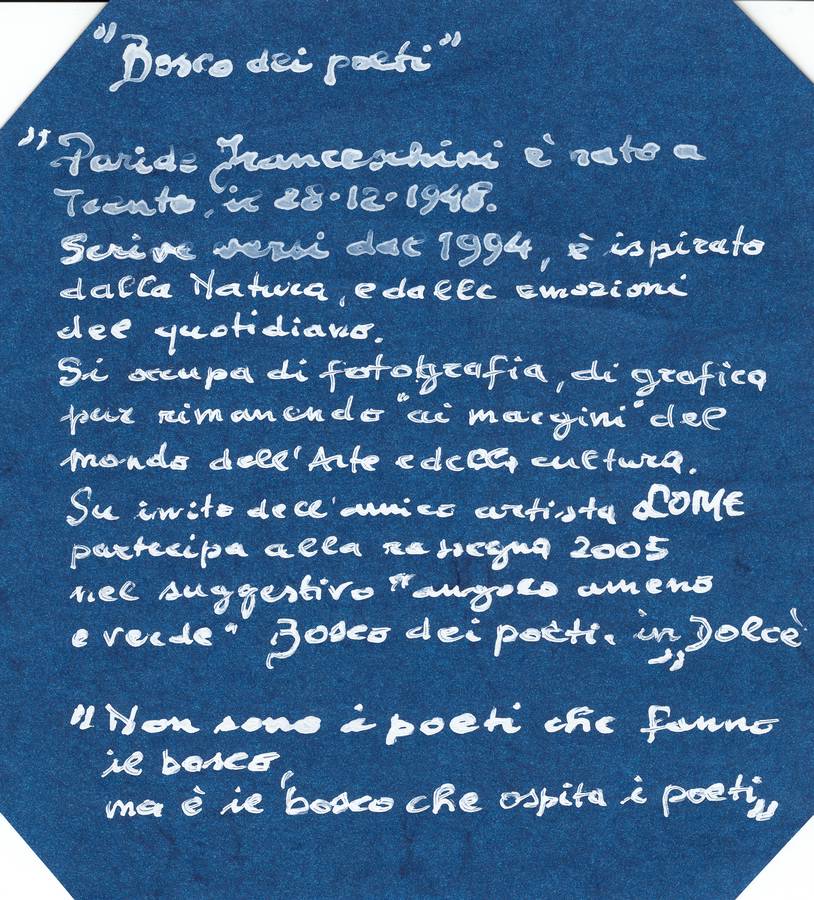 "Bosco dei poeti"
"Paride Franceschini è nato a
Trento, il 28·12·1948.
Scrive versi dal 1994, è ispirato
dalla Natura, e dalle emozioni
del quotidiano.
Si occupa di fotografia, di grafica
pur rimanendo "ai margini" del
mondo dell'Arte e della cultura.
Su invito dell'amico artista LOME
partecipa alla rassegna 2005
nel suggestivo "angolo ameno
e verde" Bosco dei poeti. in Dolcè"
"Non sono i poeti che fanno
il bosco,
ma è il bosco che ospita i poeti"